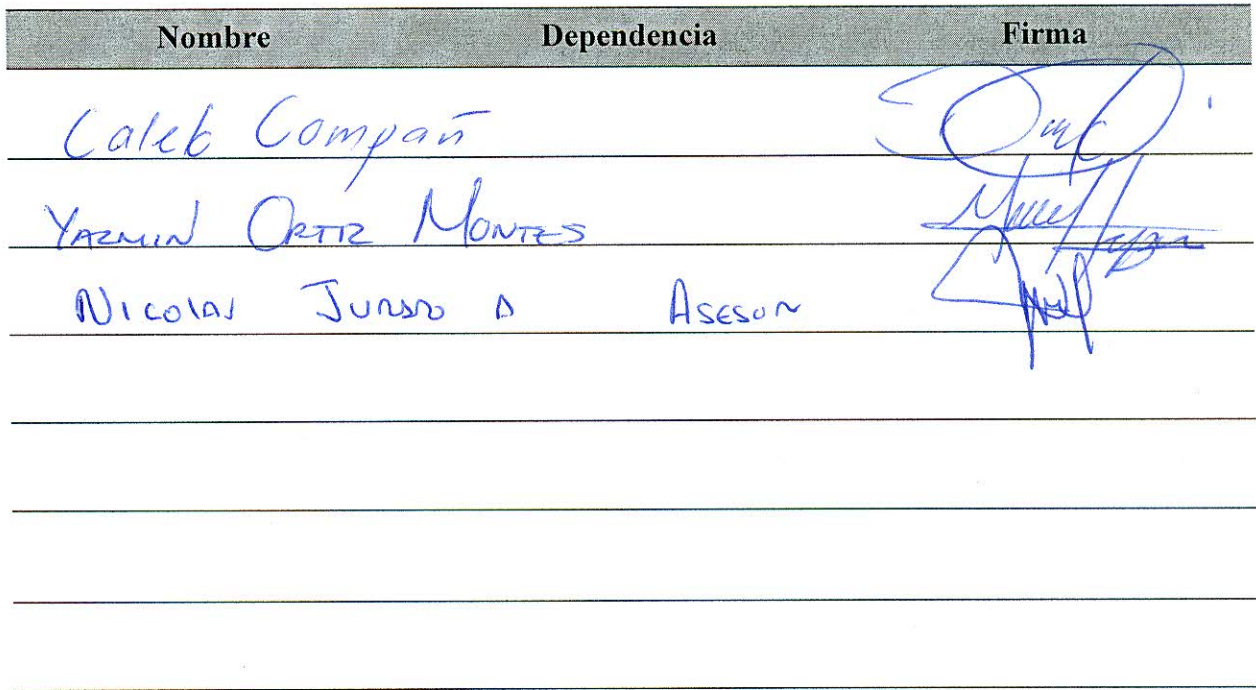 Nombre Dependencia Firma
Caleb Compañ
YAZMIN ORTIZ MONTES
NICOLAS JURADO A ASESOR